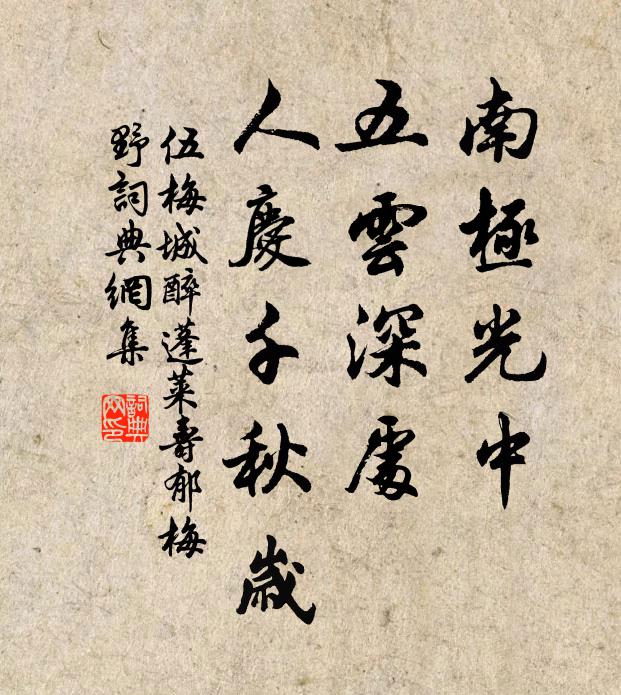 南極光中
五雲深處
人慶千秋歲
伍梅城醉蓬萊壽郁梅
野詞典網集
詞典
網印